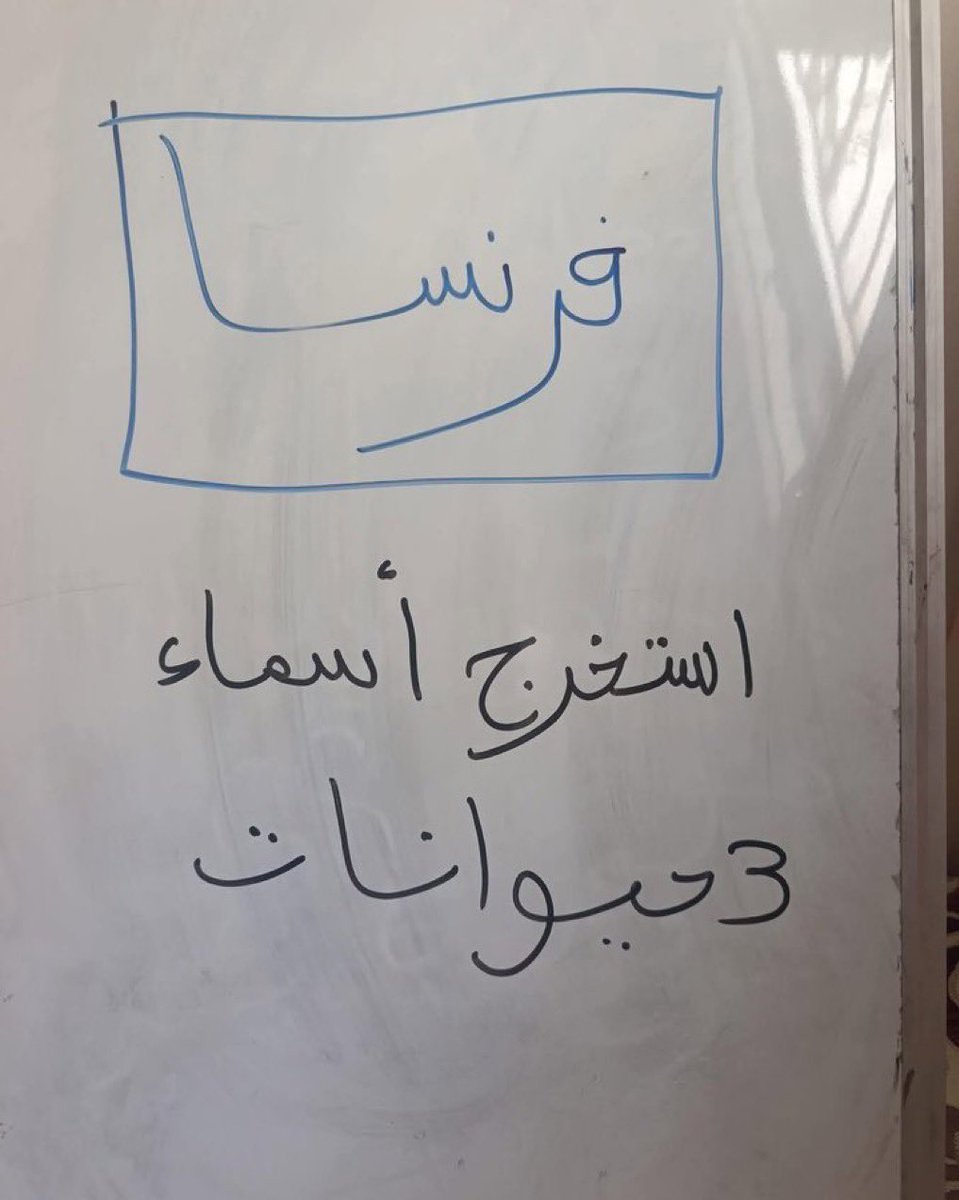 فرنسا
استخرج أسماء
3 حيوانات